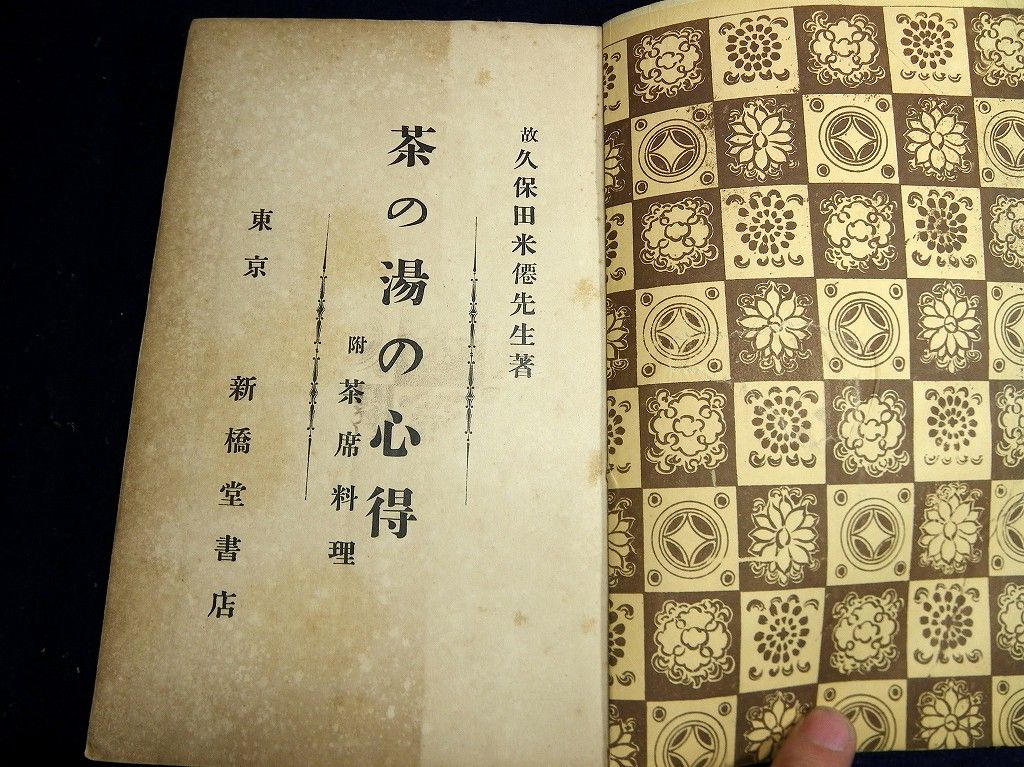 故久保田米僊先生著
茶の湯の心得
附茶席料理
東京 新橋堂書店